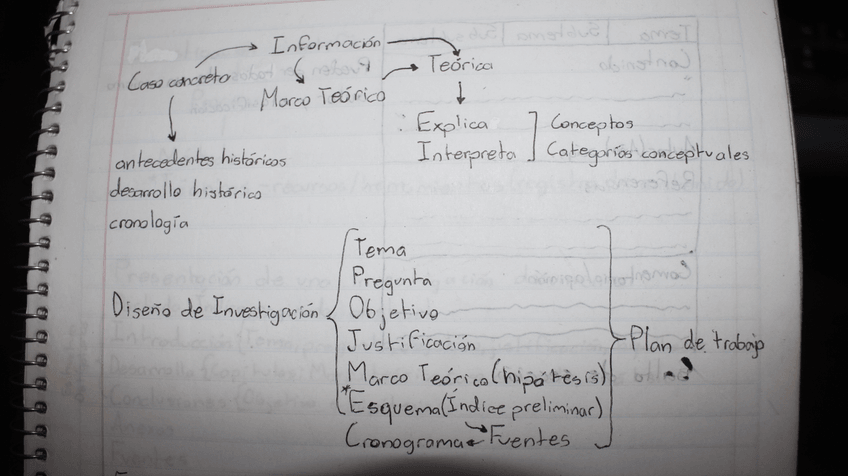 Información
Caso concreto
Teórica
Marco Teórico
Explica
Interpreta
Conceptos
Categorías conceptuales
antecedentes históricos
desarrollo histórico
cronología
Diseño de Investigación
Tema
Pregunta
Objetivo
Justificación
Marco Teórico (hipótesis)
*Esquema (Índice preliminar)
Cronograma Fuentes
Plan de trabajo